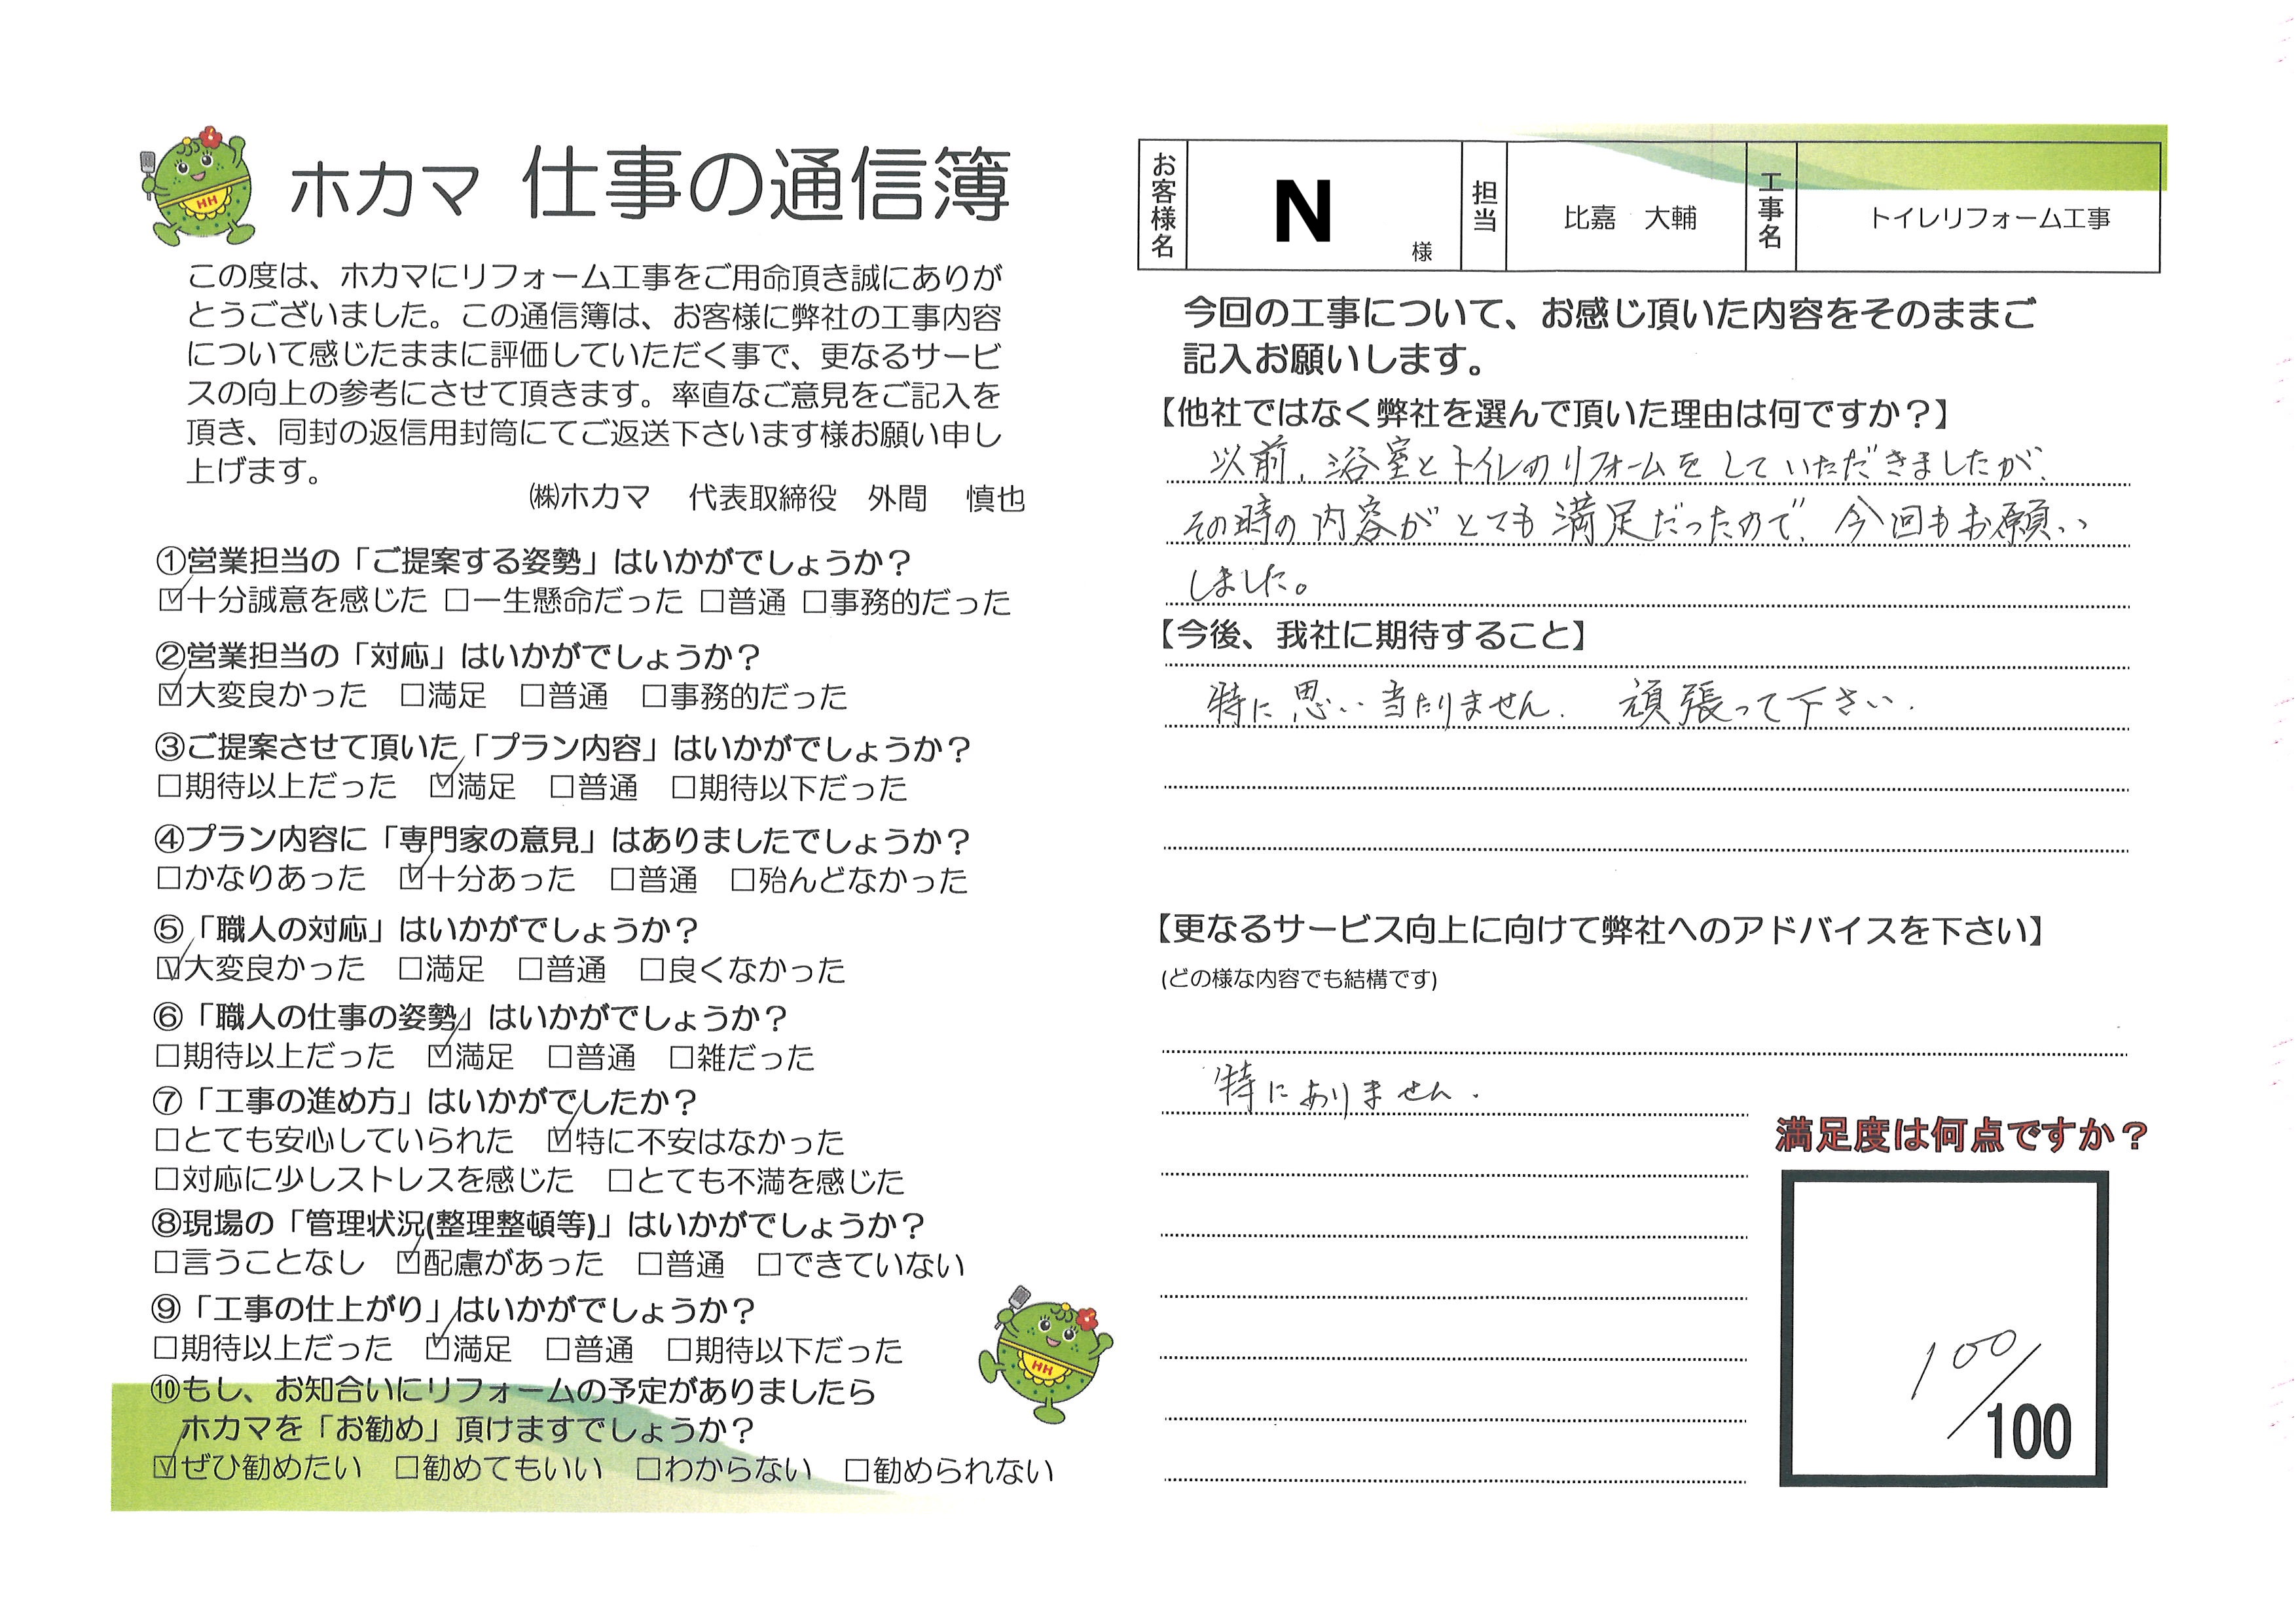 ホカマ 仕事の通信簿
HH
この度は、ホカマにリフォーム工事をご用命頂き誠にありが
とうございました。この通信簿は、お客様に弊社の工事内容
について感じたままに評価していただく事で、更なるサービ
スの向上の参考にさせて頂きます。率直なご意見をご記入を
頂き、同封の返信用封筒にてご返送下さいます様お願い申し
上げます。
㈱ホカマ 代表取締役 外間 慎也
①営業担当の「ご提案する姿勢」はいかがでしょうか？
☑十分誠意を感じた □一生懸命だった □普通 □事務的だった
②営業担当の「対応」はいかがでしょうか？
☑大変良かった □満足 □普通 □事務的だった
③ご提案させて頂いた「プラン内容」はいかがでしょうか？
□期待以上だった ☑満足 □普通 □期待以下だった
④プラン内容に「専門家の意見」はありましたでしょうか？
□かなりあった ☑十分あった □普通 □殆んどなかった
⑤「職人の対応」はいかがでしょうか？
☑大変良かった □満足 □普通 □良くなかった
⑥「職人の仕事の姿勢」はいかがでしょうか？
□期待以上だった ☑満足 □普通 □雑だった
⑦「工事の進め方」はいかがでしたか？
□とても安心していられた ☑特に不安はなかった
□対応に少しストレスを感じた □とても不満を感じた
⑧現場の「管理状況(整理整頓等)」はいかがでしょうか？
□言うことなし ☑配慮があった □普通 □できていない
⑨「工事の仕上がり」はいかがでしょうか？
□期待以上だった ☑満足 □普通 □期待以下だった
HH
⑩もし、お知合いにリフォームの予定がありましたら
ホカマを「お勧め」頂けますでしょうか？
☑ぜひ勧めたい □勧めてもいい □わからない □勧められない
お客様名 N 様 担当 比嘉 大輔 工事名 トイレリフォーム工事
今回の工事について、お感じ頂いた内容をそのままご
記入お願いします。
【他社ではなく弊社を選んで頂いた理由は何ですか？】
以前、浴室とトイレのリフォームをしていただきましたが、
その時の内容がとても満足だったので、今回もお願い
しました。
【今後、我社に期待すること】
特に思い当たりません. 頑張って下さい.
【更なるサービス向上に向けて弊社へのアドバイスを下さい】
(どの様な内容でも結構です)
特にありません.
満足度は何点ですか？
100/100